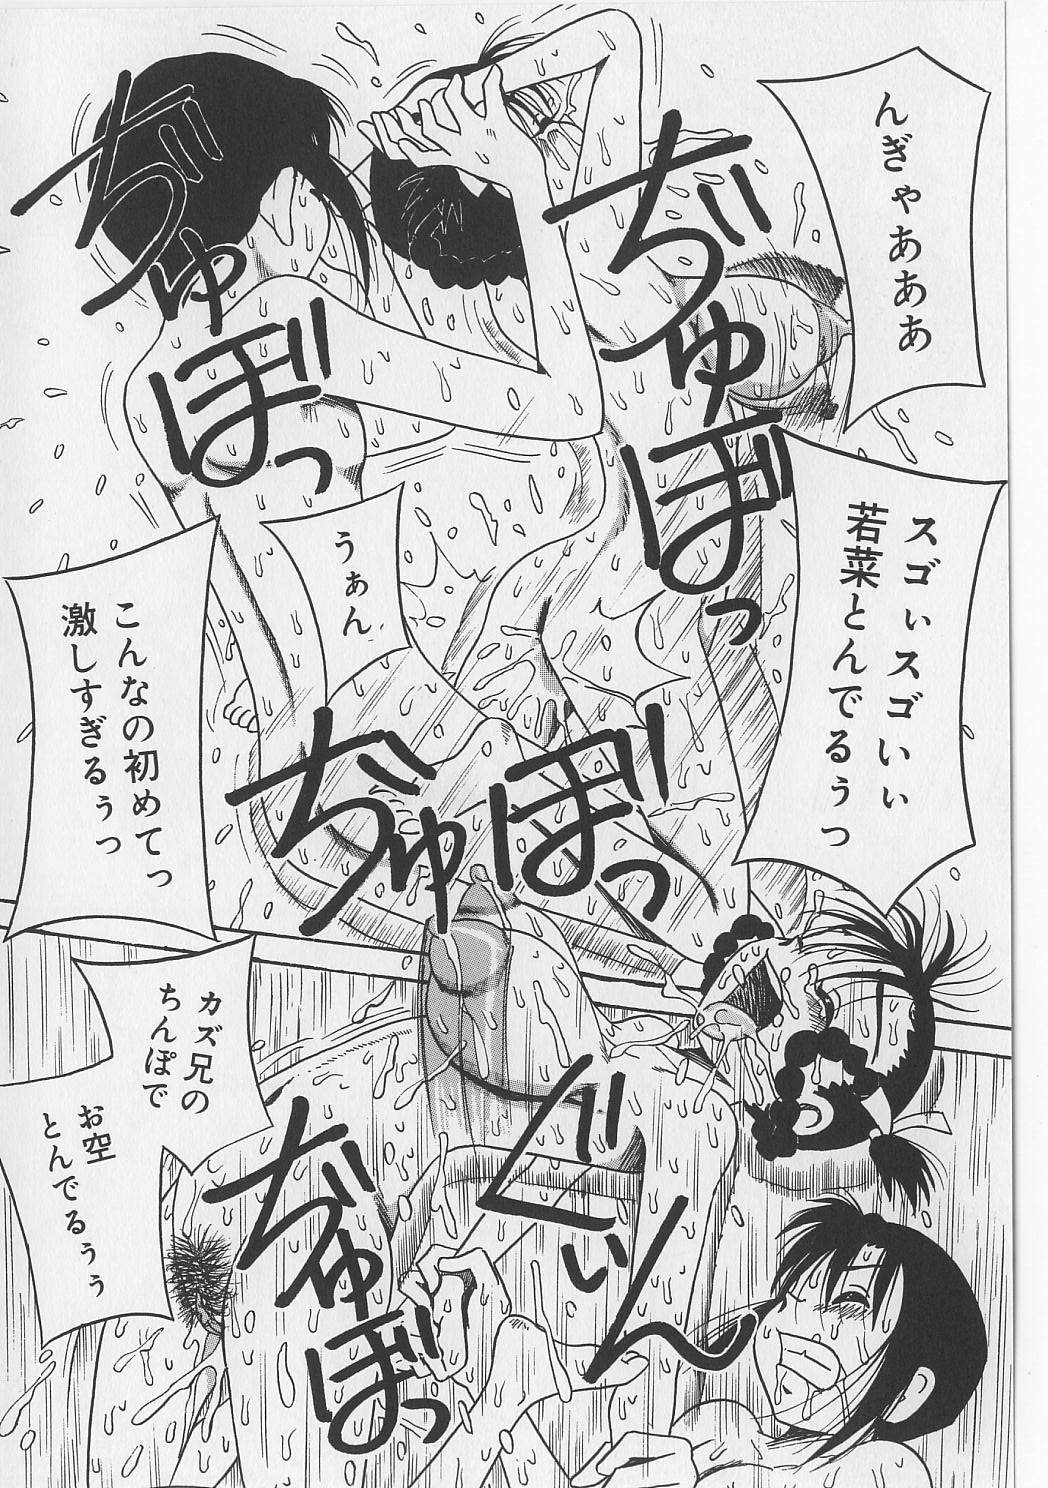 んぎゃあああ
スゴぃスゴいぃ
若菜とんでるぅっ
うぁん
こんなの初めてっ
激しすぎるぅっ
カズ兄の
ちんぽで
お空
とんでるぅぅ
ぢゅぼっ
ぢゅぼっ
ぢゅぼっ
ぢゅぼっ
びくぅん